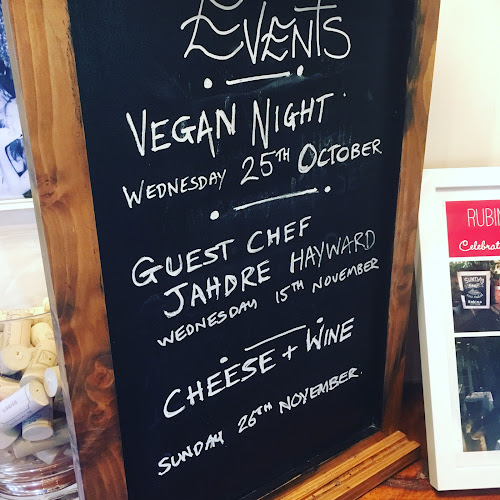 EVENTS
VEGAN NIGHT
WEDNESDAY 25TH OCTOBER
GUEST CHEF
JAHDRE HAYWARD
WEDNESDAY 15TH NOVEMBER
CHEESE + WINE
SUNDAY 26TH NOVEMBER.
RUBIN
Celebrat